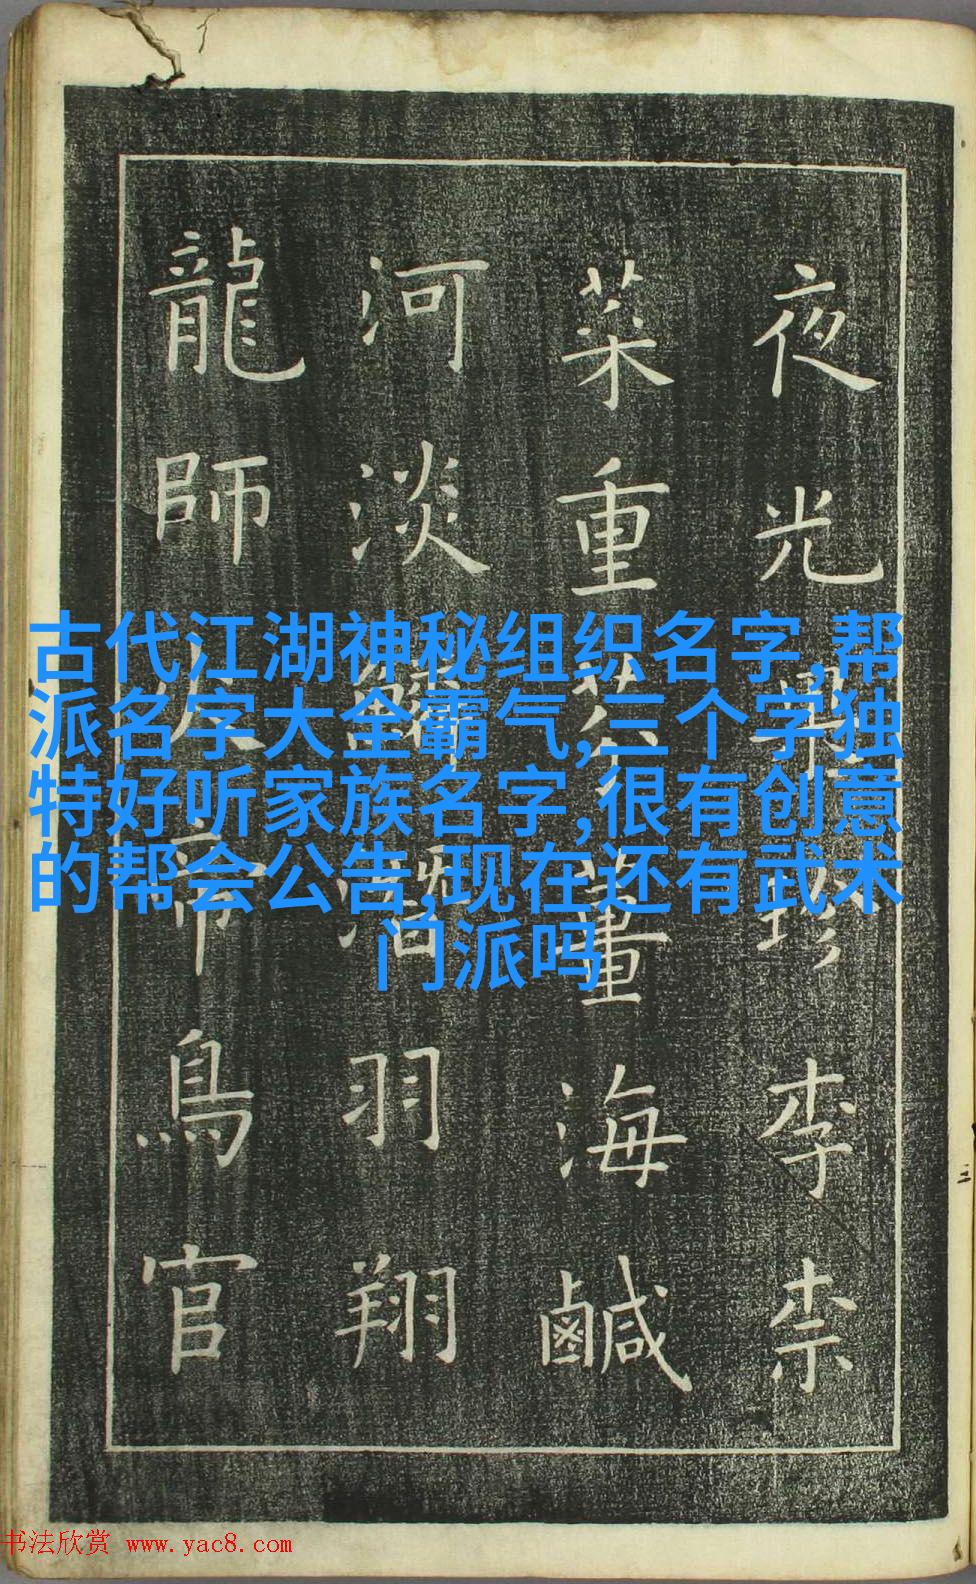 夜光珍李柰
菜重芥薑海鹹
河淡潛羽翔
龍師火帝鳥官
古代江湖神秘组织名字,帮
派名字大全霸气,三个字独
特好听家族名字,很有创意
的帮会公告,现在还有武术
门派吗
书法欣赏 www.yac8.com